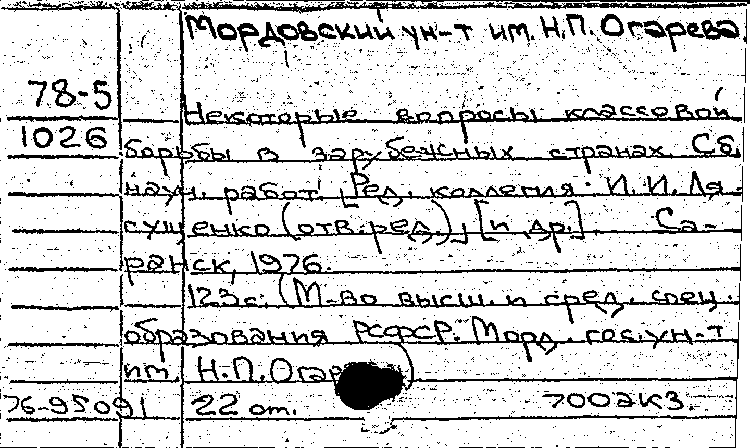 Мордовский ун-т им. Н.П. Огарева.
78-5
Некоторые вопросы классовой
1026
борьбы в зарубежных странах. Сб.
науч. работ. [Ред. коллегия: И. И. Ля-
сущенко (отв. ред.)], [и др.]. Са-
ранск, 1976.
123с. (М-во высш. и сред. спец.
образования РСФСР. Морд. гос. ун-т
им. Н.П. Огар
76-95091 22 от. 700экз.